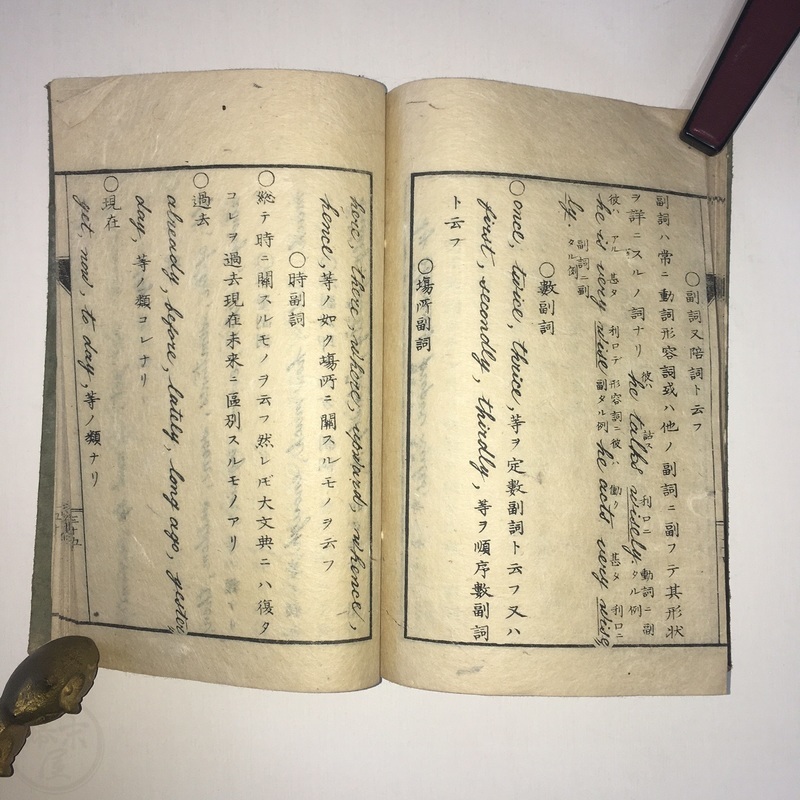 〇副詞又陪詞ト云フ
副詞ハ常ニ動詞形容詞或ハ他ノ副詞ニ副フテ其形状
ヲ詳ニスルノ詞ナリ he talks wisely. 動詞ニ副タル例
彼ハ 話ス 利口ニ
he is very wise 形容詞ニ副タル例 he acts very wise
彼ハ アル 甚タ 利口デ 彼ハ 働ク 甚タ 利口ニ
ly. 副詞ニ副タル例
〇數副詞
〇once, twice, thrice, 等ヲ定數副詞ト云フ又ハ
first, secondly, thirdly, 等ヲ順序數副詞
ト云フ
〇塲所副詞
here, there, where, upward, whence,
hence, 等ノ如ク塲所ニ關スルモノヲ云フ
〇時副詞
〇總テ時ニ關スルモノヲ云フ然レ𪜈大文典ニハ復タ
コレヲ過去現在未来ニ區別スルモノアリ
〇過去
already, before, lately, long ago, yester
day, 等ノ類コレナリ
〇現在
yet, now, to day, 等ノ類ナリ